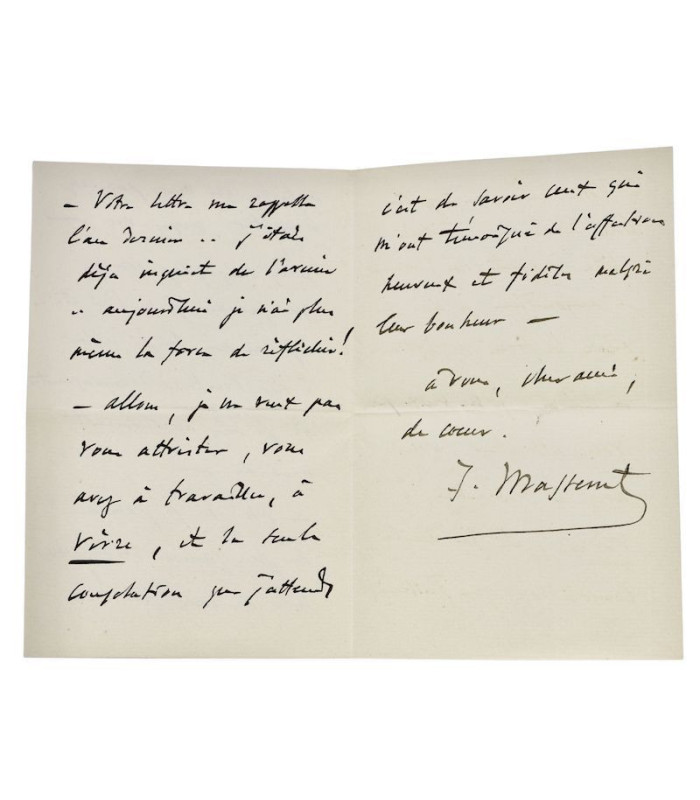 – Votre lettre me rappelle
l'an dernier .. j'étais
déjà inquiet de l'avenir
.. aujourd'hui je n'ai plus
même la force de réfléchir !
– allons, je ne veux pas
vous attrister, vous
avez à travailler, à
vivre, et la seule
consolation que j'attends
c'est de savoir ceux qui
m'ont témoigné de l'affection
heureux et fidèles malgré
leur bonheur –
à vous, cher ami,
de cœur.
J. Massenet